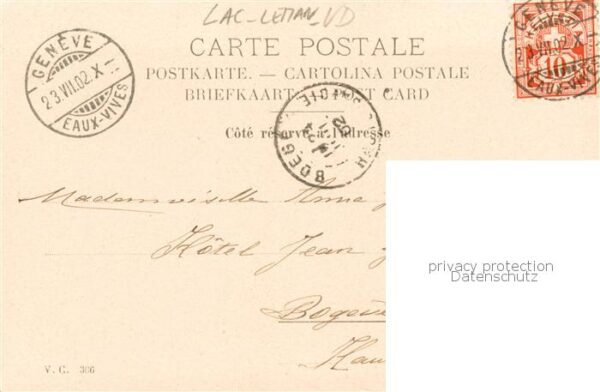 LAC-LEMAN_VD
GENÈVE
23.VII.02.X
EAUX-VIVES
GENÈVE
23.VII.02.X
EAUX-VIVES
10
CARTE POSTALE
POSTKARTE. — CARTOLINA POSTALE
BRIEFKAART POST CARD
Côté réservé à l'adresse
BOEGE
Mademoiselle Anna
Hôtel Jean
Bogève
Hau
privacy protection
Datenschutz
V. C. 386